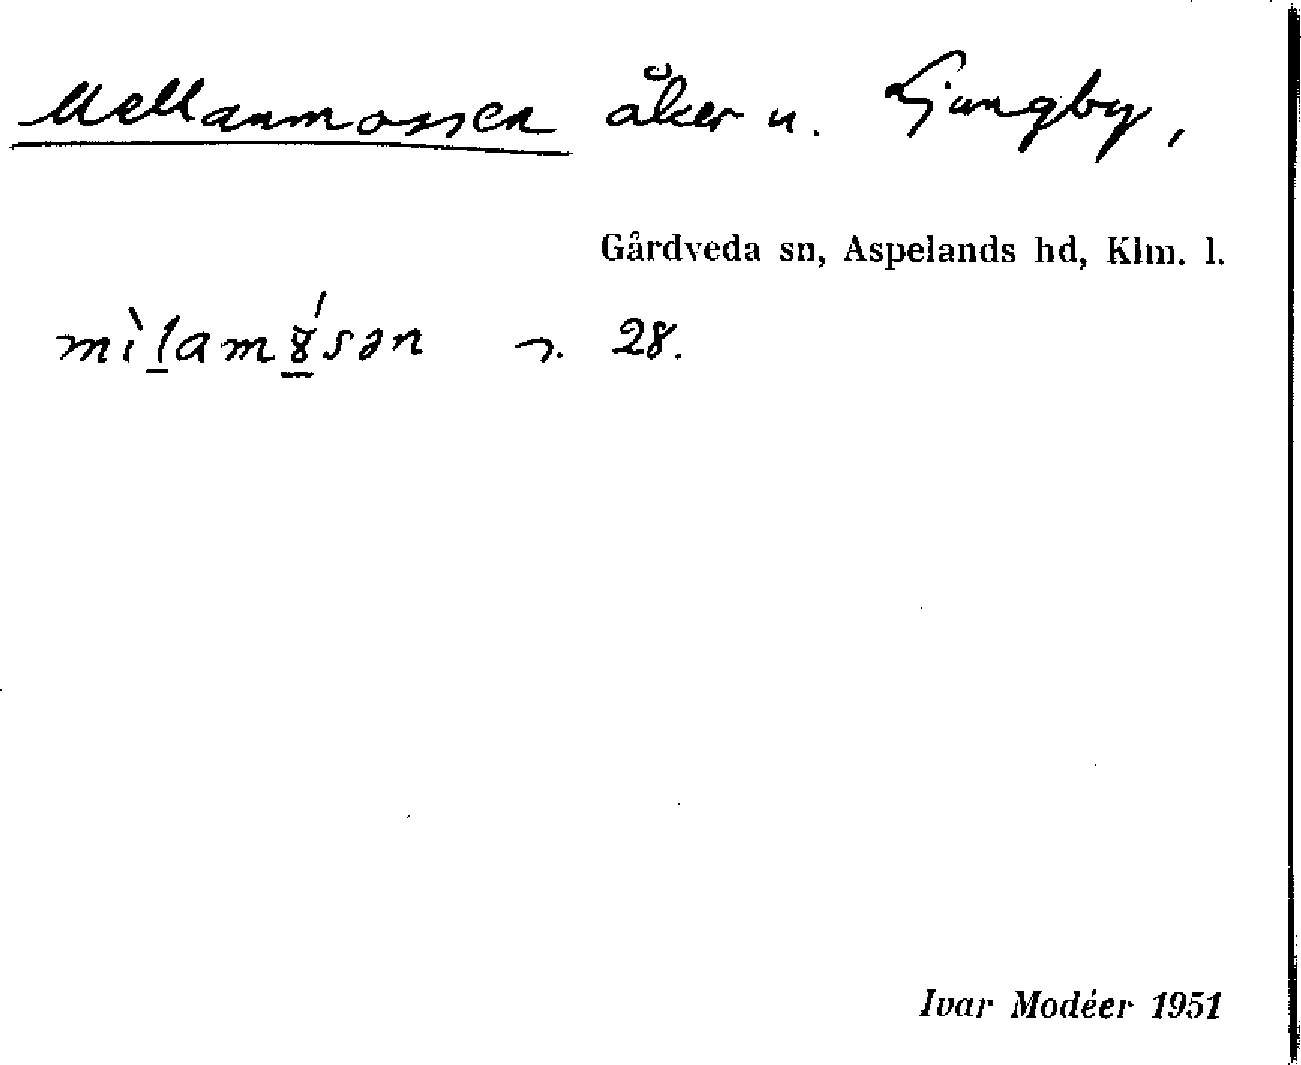 Mellanmossen åker u. Ljungby,
Gårdveda sn, Aspelands hd, Klm. l.
mìlamɣ́sən n. 28.
Ivar Modéer 1951